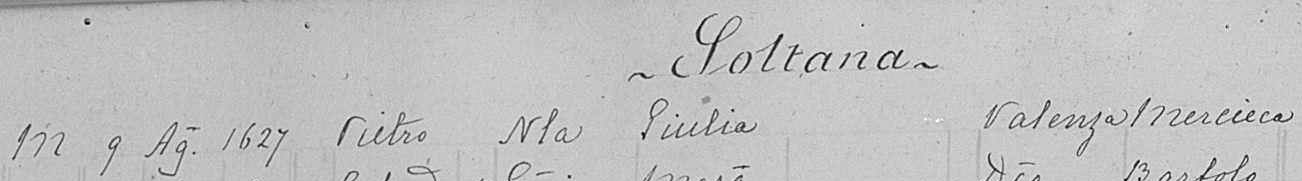 ~ Soltana ~
M 9 Ag. 1627 Pietro Nla Giulia Valenza Mercieca
Bartolo